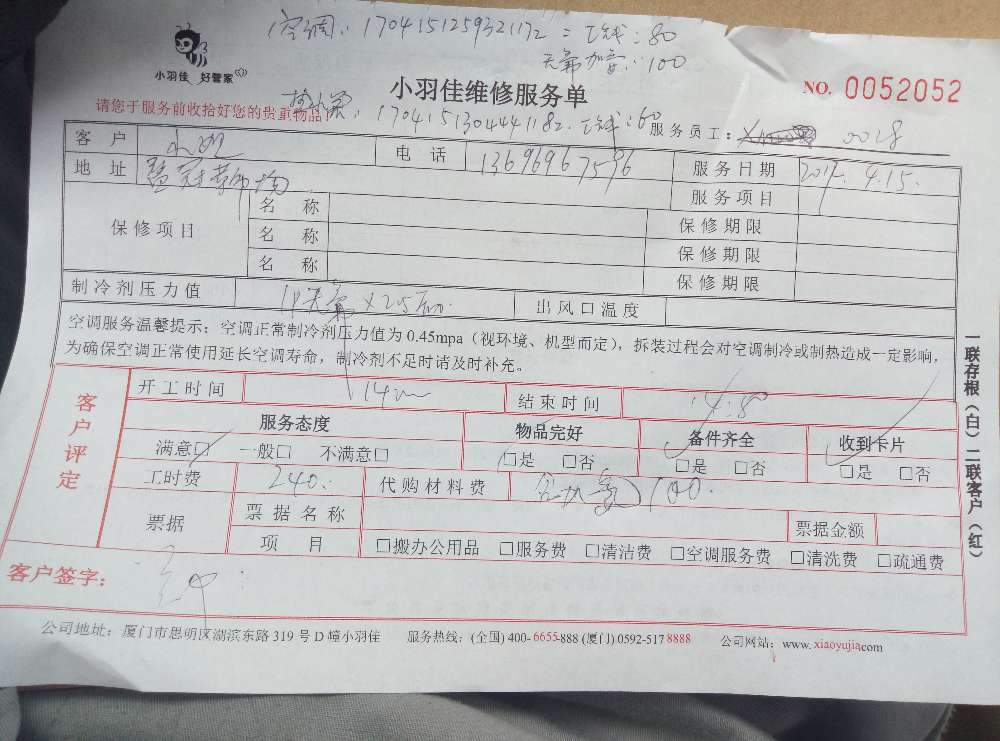 空调：1704151259321172 = 工钱：80
无氟加音：100
小羽佳 好管家
小羽佳维修服务单
NO. 0052052
请您于服务前收拾好您的贵重物品！
1704151304441182. 工钱：60
服务员工： 0028
客户 电话 13696967596 服务日期 2017. 4.15.
地址 服务项目
保修项目 名称 保修期限
名称 保修期限
名称 保修期限
制冷剂压力值 出风口温度
空调服务温馨提示：空调正常制冷剂压力值为 0.45mpa（视环境、机型而定），拆装过程会对空调制冷或制热造成一定影响，
为确保空调正常使用延长空调寿命，制冷剂不足时请及时补充。
客户评定
开工时间 结束时间
服务态度 物品完好 备件齐全 收到卡片
满意□ 一般□ 不满意□ □是 □否 □是 □否 □是 □否
工时费 240. 代购材料费 100.
票据 票据名称 票据金额
项目 □搬办公用品 □服务费 □清洁费 □空调服务费 □清洗费 □疏通费
客户签字：
一联存根（白）二联客户（红）
公司地址：厦门市思明区湖滨东路 319 号 D 幢小羽佳 服务热线：(全国) 400-6655-888 (厦门) 0592-517 8888 公司网站：www.xiaoyujia.com